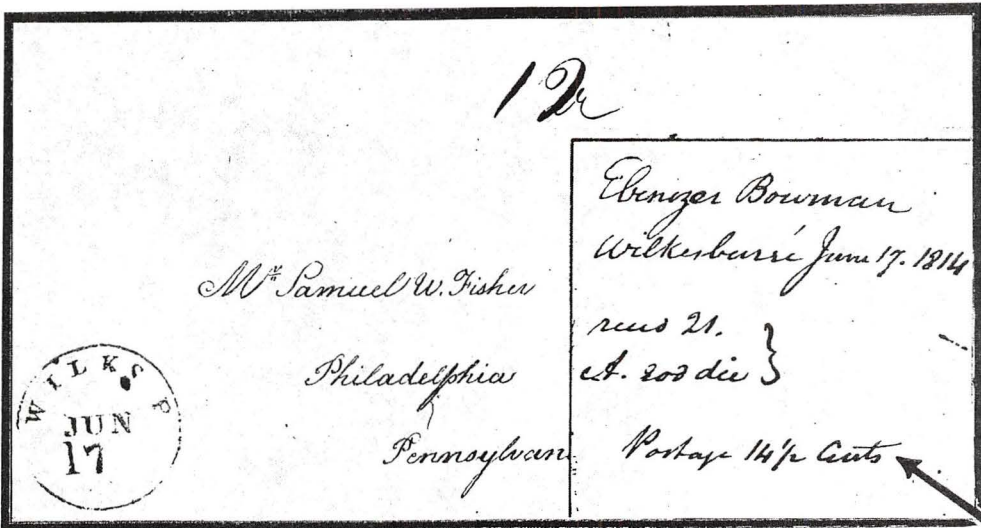 12
Mr. Samuel W. Fisher
Philadelphia
Pennsylvan
WILKS
JUN
17
Ebenezer Bowman
Wilkesbarré June 17. 1814
21.
A. die
Postage 14½ Cents